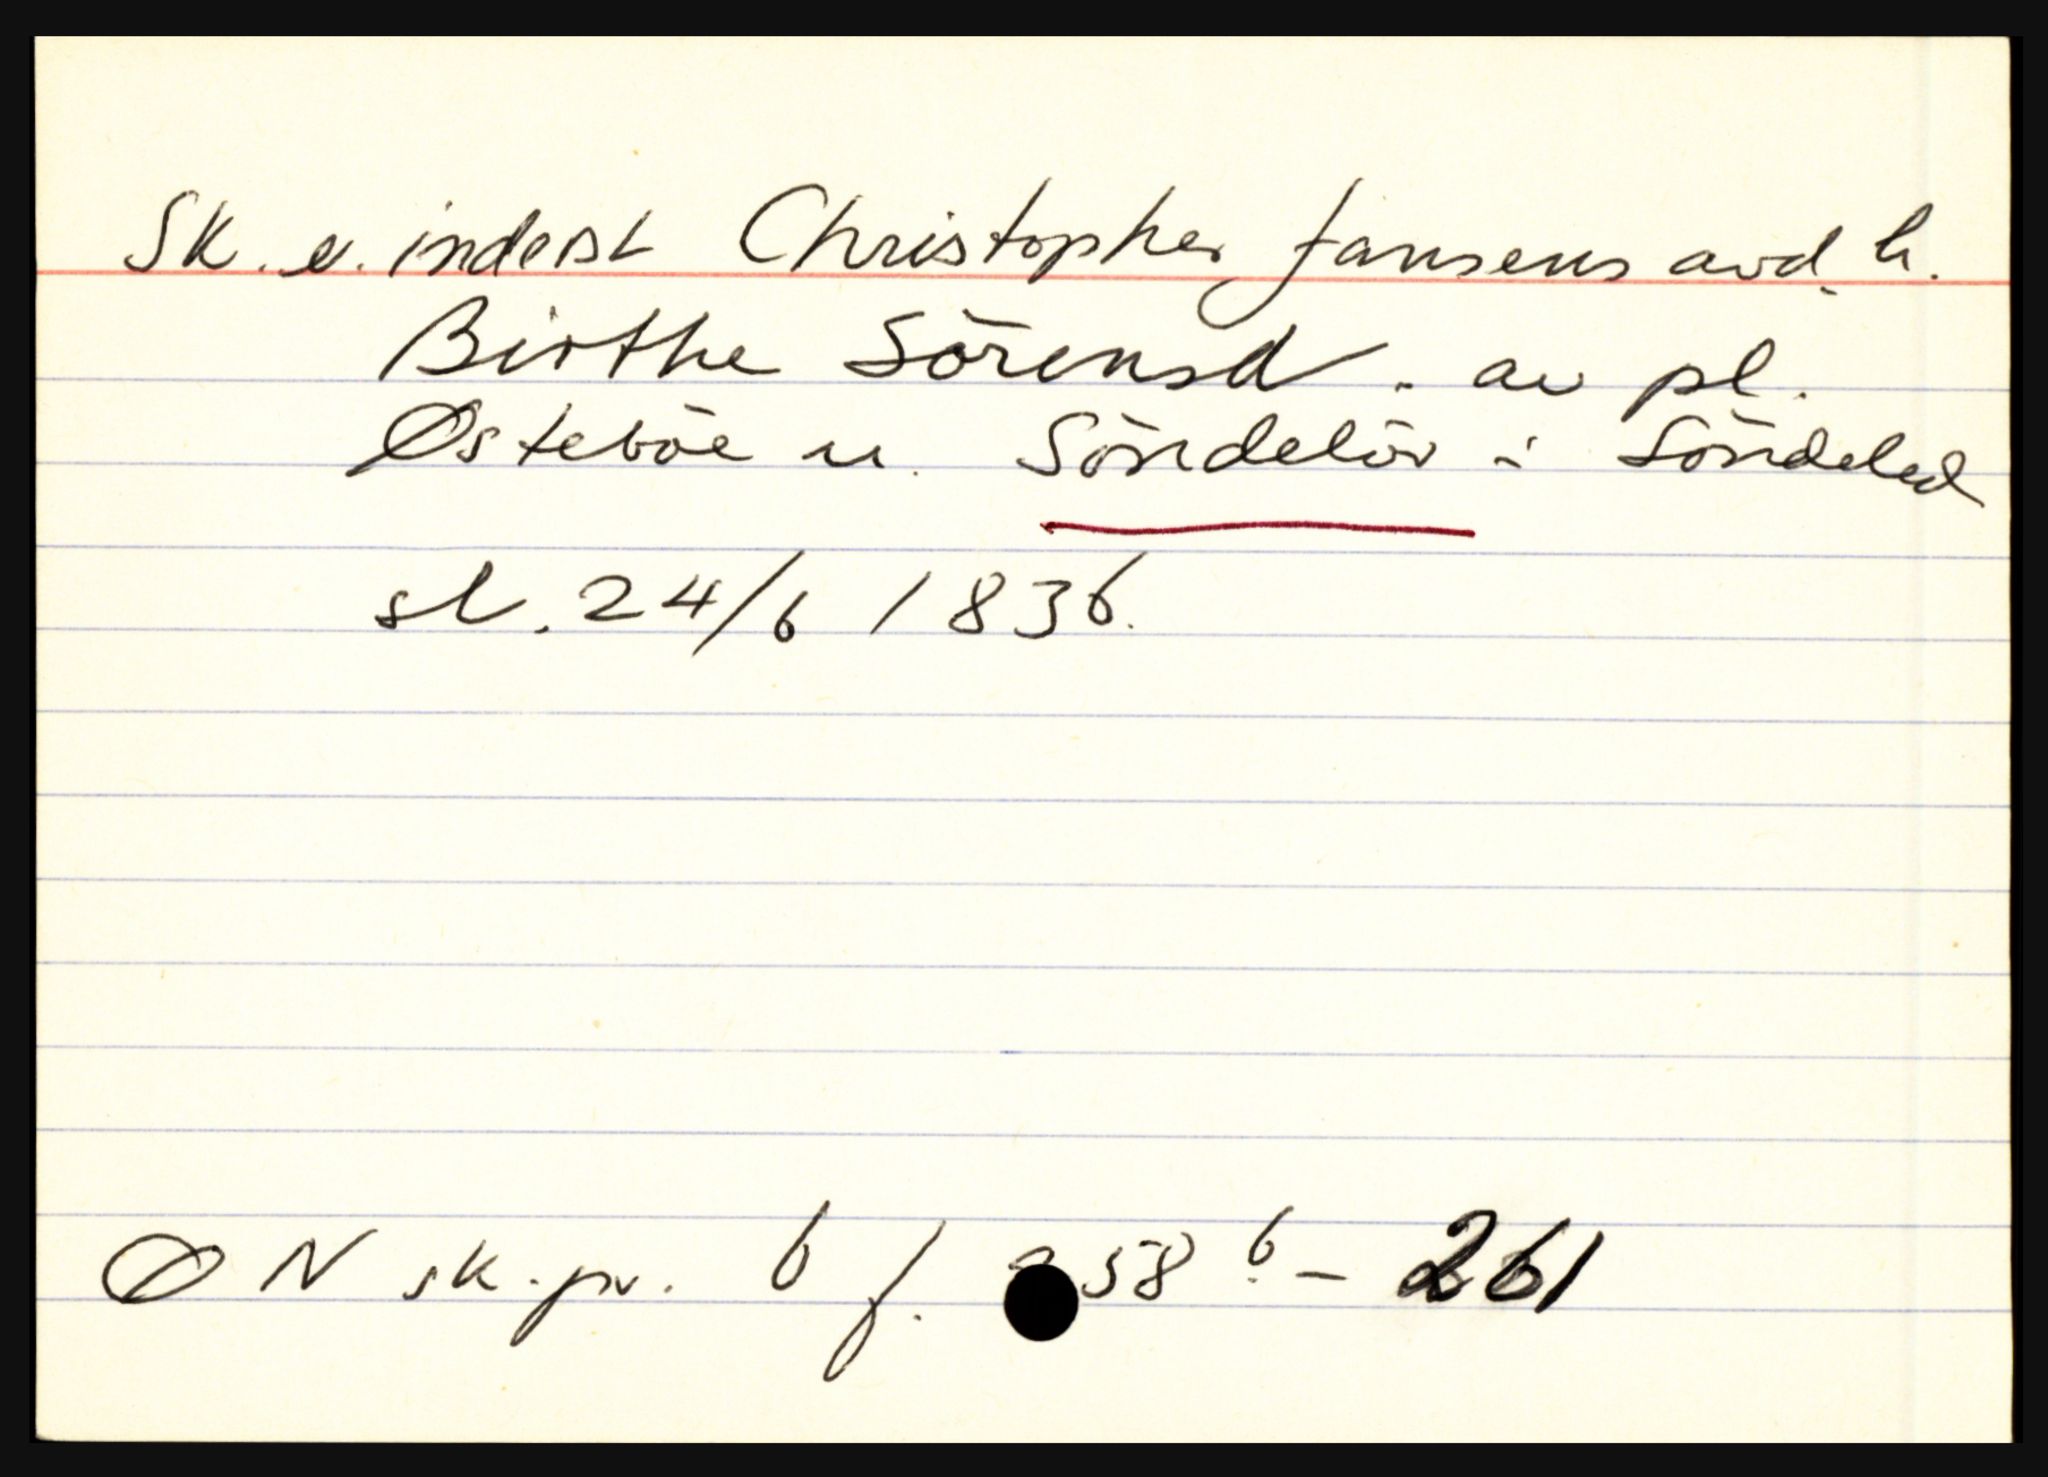 Sk. e. inderst Christopher Jansens avd. h.
Birthe Sörensd. av pl.
Østeböe u. Söndeløv i Söndeled
sl. 24/6 1836.
Ø N sk.pr. 6 f. 258 b - 261